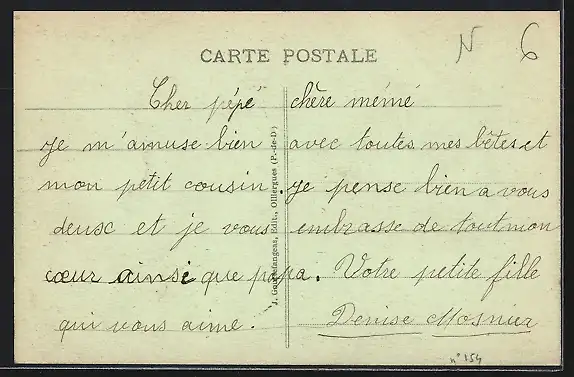 N 6
CARTE POSTALE
Cher pépé chère mémé
je m'amuse bien avec toutes mes bêtes et
mon petit cousin. je pense bien a vous
deusc et je vous embrasse de tout mon
cœur ainsi que papa. Votre petite fille
qui vous aime. Denise Mosnier
n° 154
J. Gouttefangeas, Edit., Olliergues (P.-de-D.)